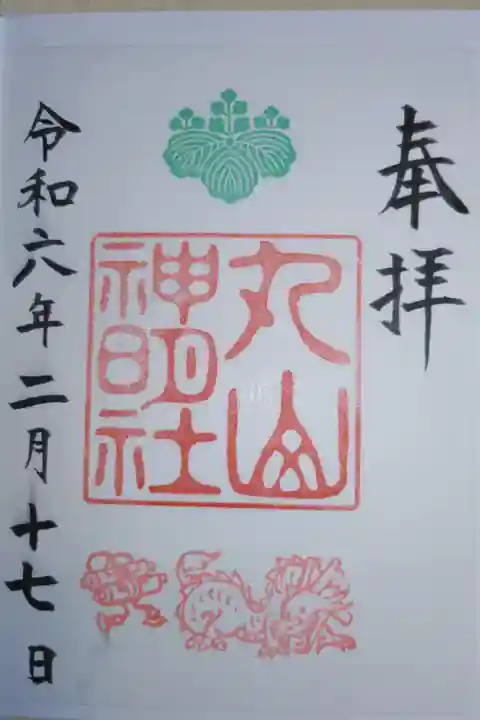 奉拝
丸山
神明社
令和六年二月十七日